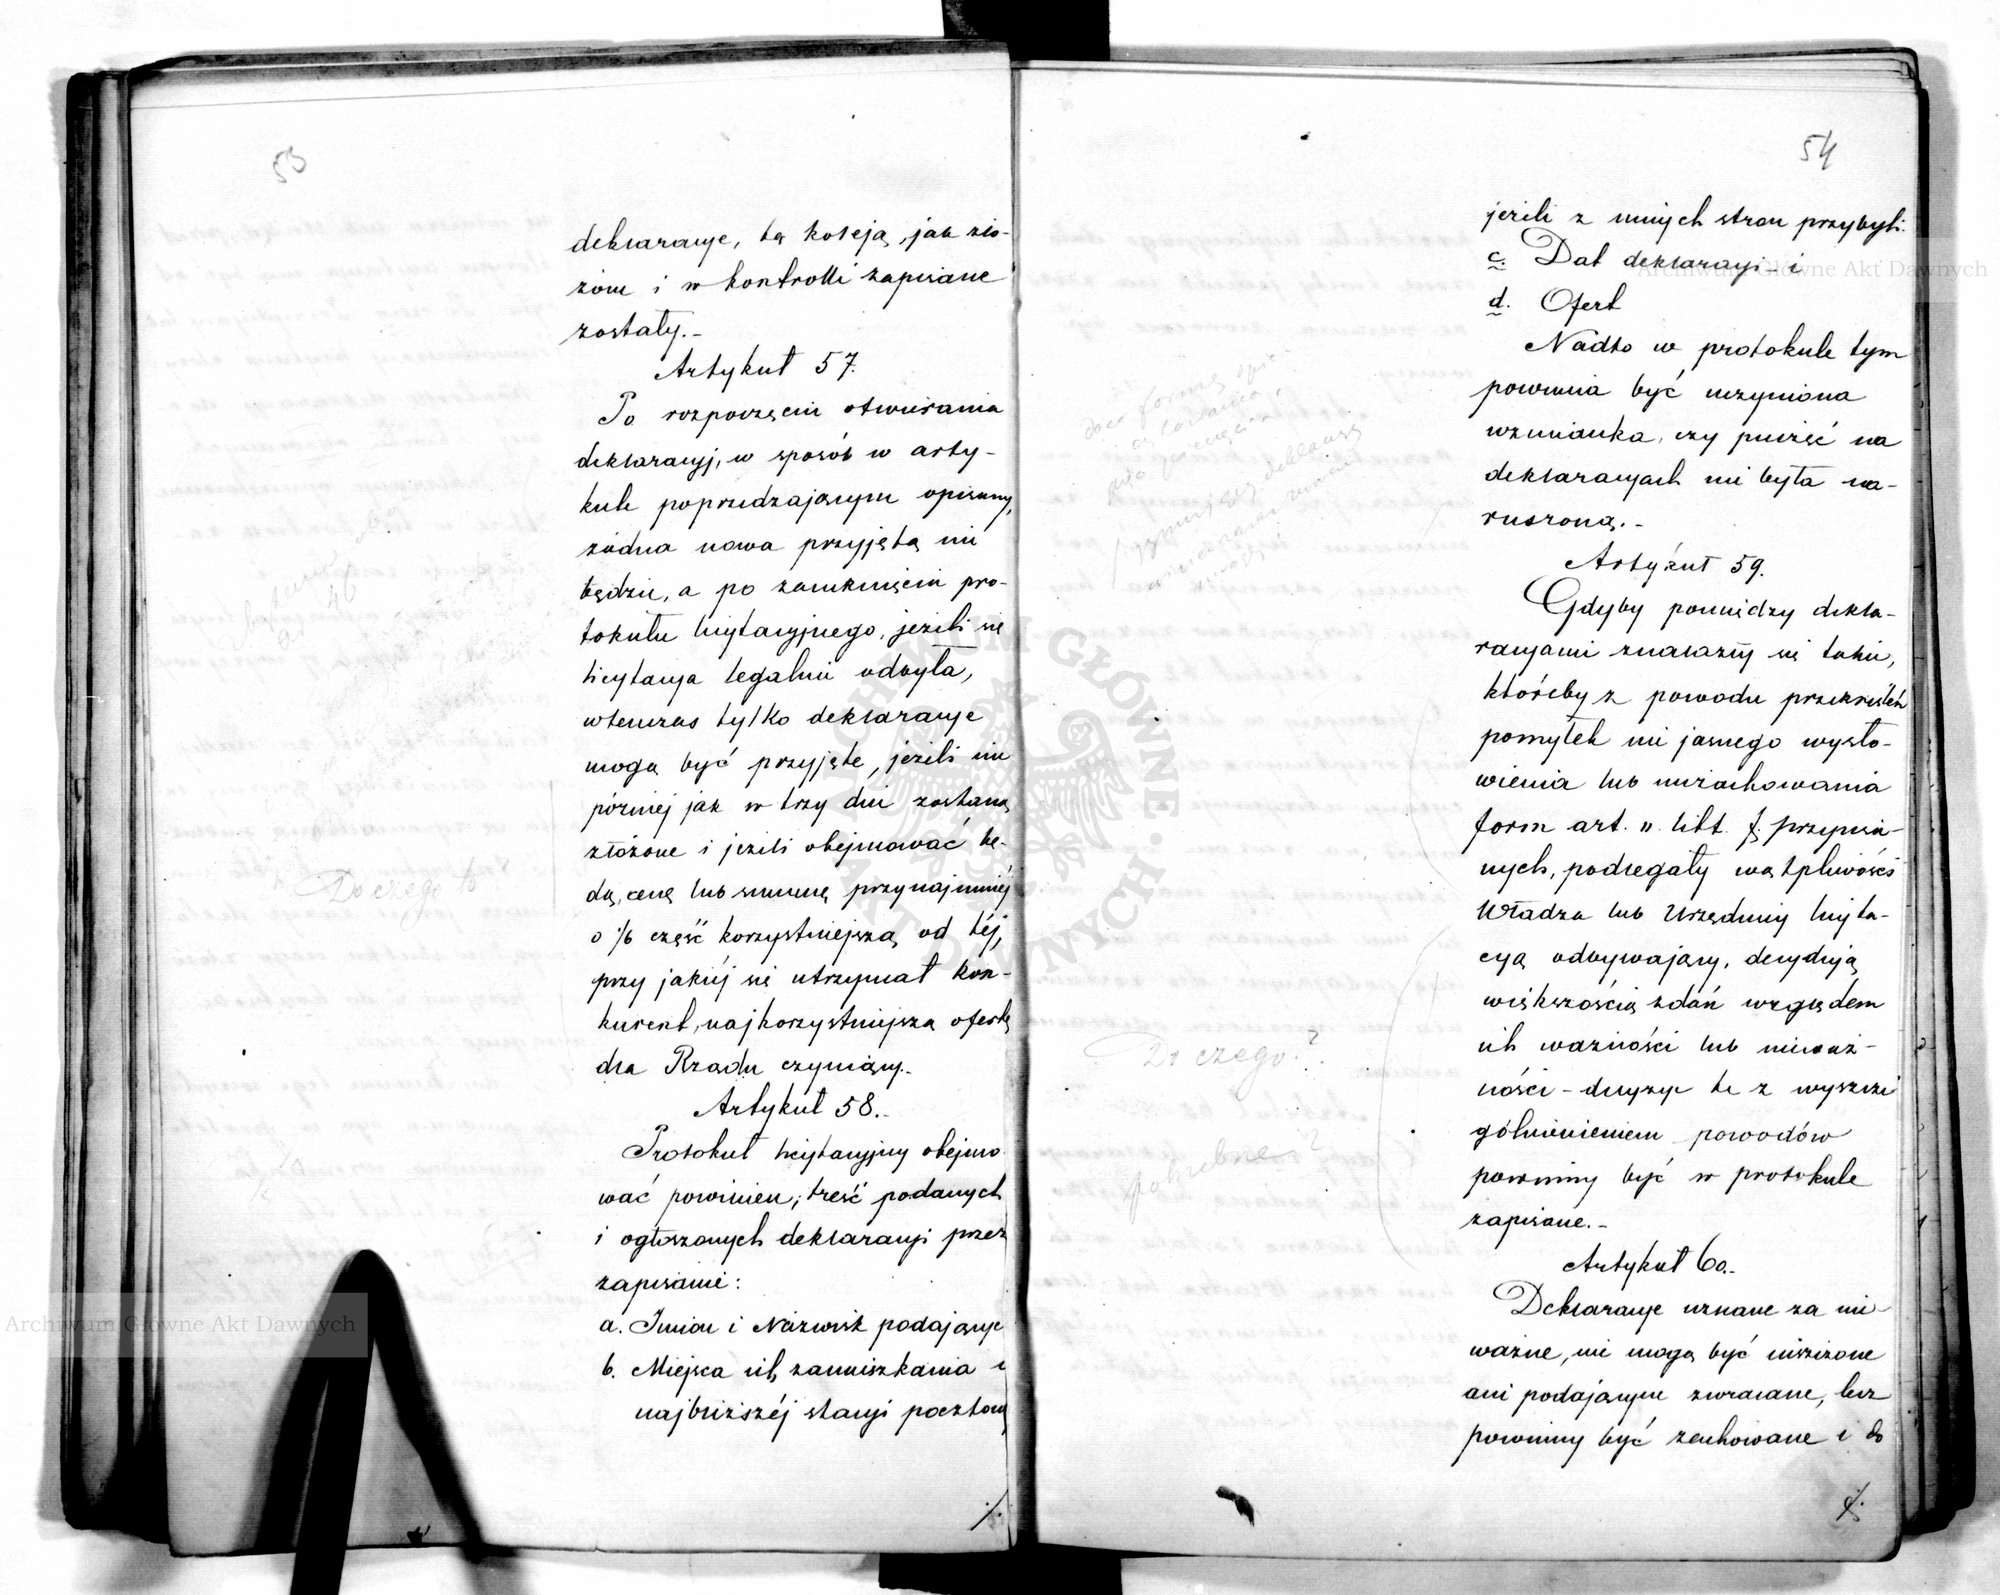 53
deklaracye, tą koleją, jak zło-
żone i w kontrolli zapisane
zostały.-
Artykuł 57.
Po rozpoczęciu otwierania
deklaracyj, w sposób w arty-
kule poprzedzającym opisany,
żadna nowa przyjętą nie
będzie, a po zamknięciu pro-
tokułu licytacyjnego, jeżeli się
licytacya legalnie odbyła,
wtenczas tylko deklaracye
mogą być przyjęte, jeżeli nie
później jak w trzy dni zostaną
złożone i jeżeli obejmować bę-
dą, cenę lub summę przynajmniéj
o 1/6 część korzystniejszą od téj,
przy jakiéj się utrzymał kon-
kurent, najkorzystniejszą ofertę
dla Rządu czyniący.-
Artykuł 58.-
Protokuł licytacyjny obejmo-
wać powinien, treść podanych
i ogłoszonych deklaracyi przez
zapisanie:
a. Imion i Nazwisk podających
b. Miejsca ich zamieszkania i
najbliższéj stacyi pocztowéj
Do czego to
46
./.
54
jeżeli z innych stron przybyli.
c. Dat deklaracyi - i
d. Ofert
Nadto w protokule tym
powinna być uczyniona
wzmianka, czy pieczęć na
deklaracyach nie była na-
ruszoną.-
Artykuł 59.
Gdyby pomiędzy dekla-
racyami znalazły się takie,
któréby z powodu przekreśleń
pomyłek nie jasnego wysło-
wienia lub niezachowania
form art. 11. litt. f. przepisa-
nych, podlegały wątpliwości
Władza lub Urzędnicy licyta-
cyą odbywający, decydują
większością zdań względem
ich ważności lub nieważ-
ności - decyzye te z wyszcze-
gólnieniem powodów
powinny być w protokule
zapisane.-
Artykuł 60.-
Deklaracye uznane za nie-
ważne, nie mogą być niszczone
ani podającym zwracane, lecz
powinny być zachowane i do
Do czego?
potrzebne?
./.
Archiwum Główne Akt Dawnych
Archiwum Główne Akt Dawnych
ARCHIWUM GŁÓWNE AKT DAWNYCH